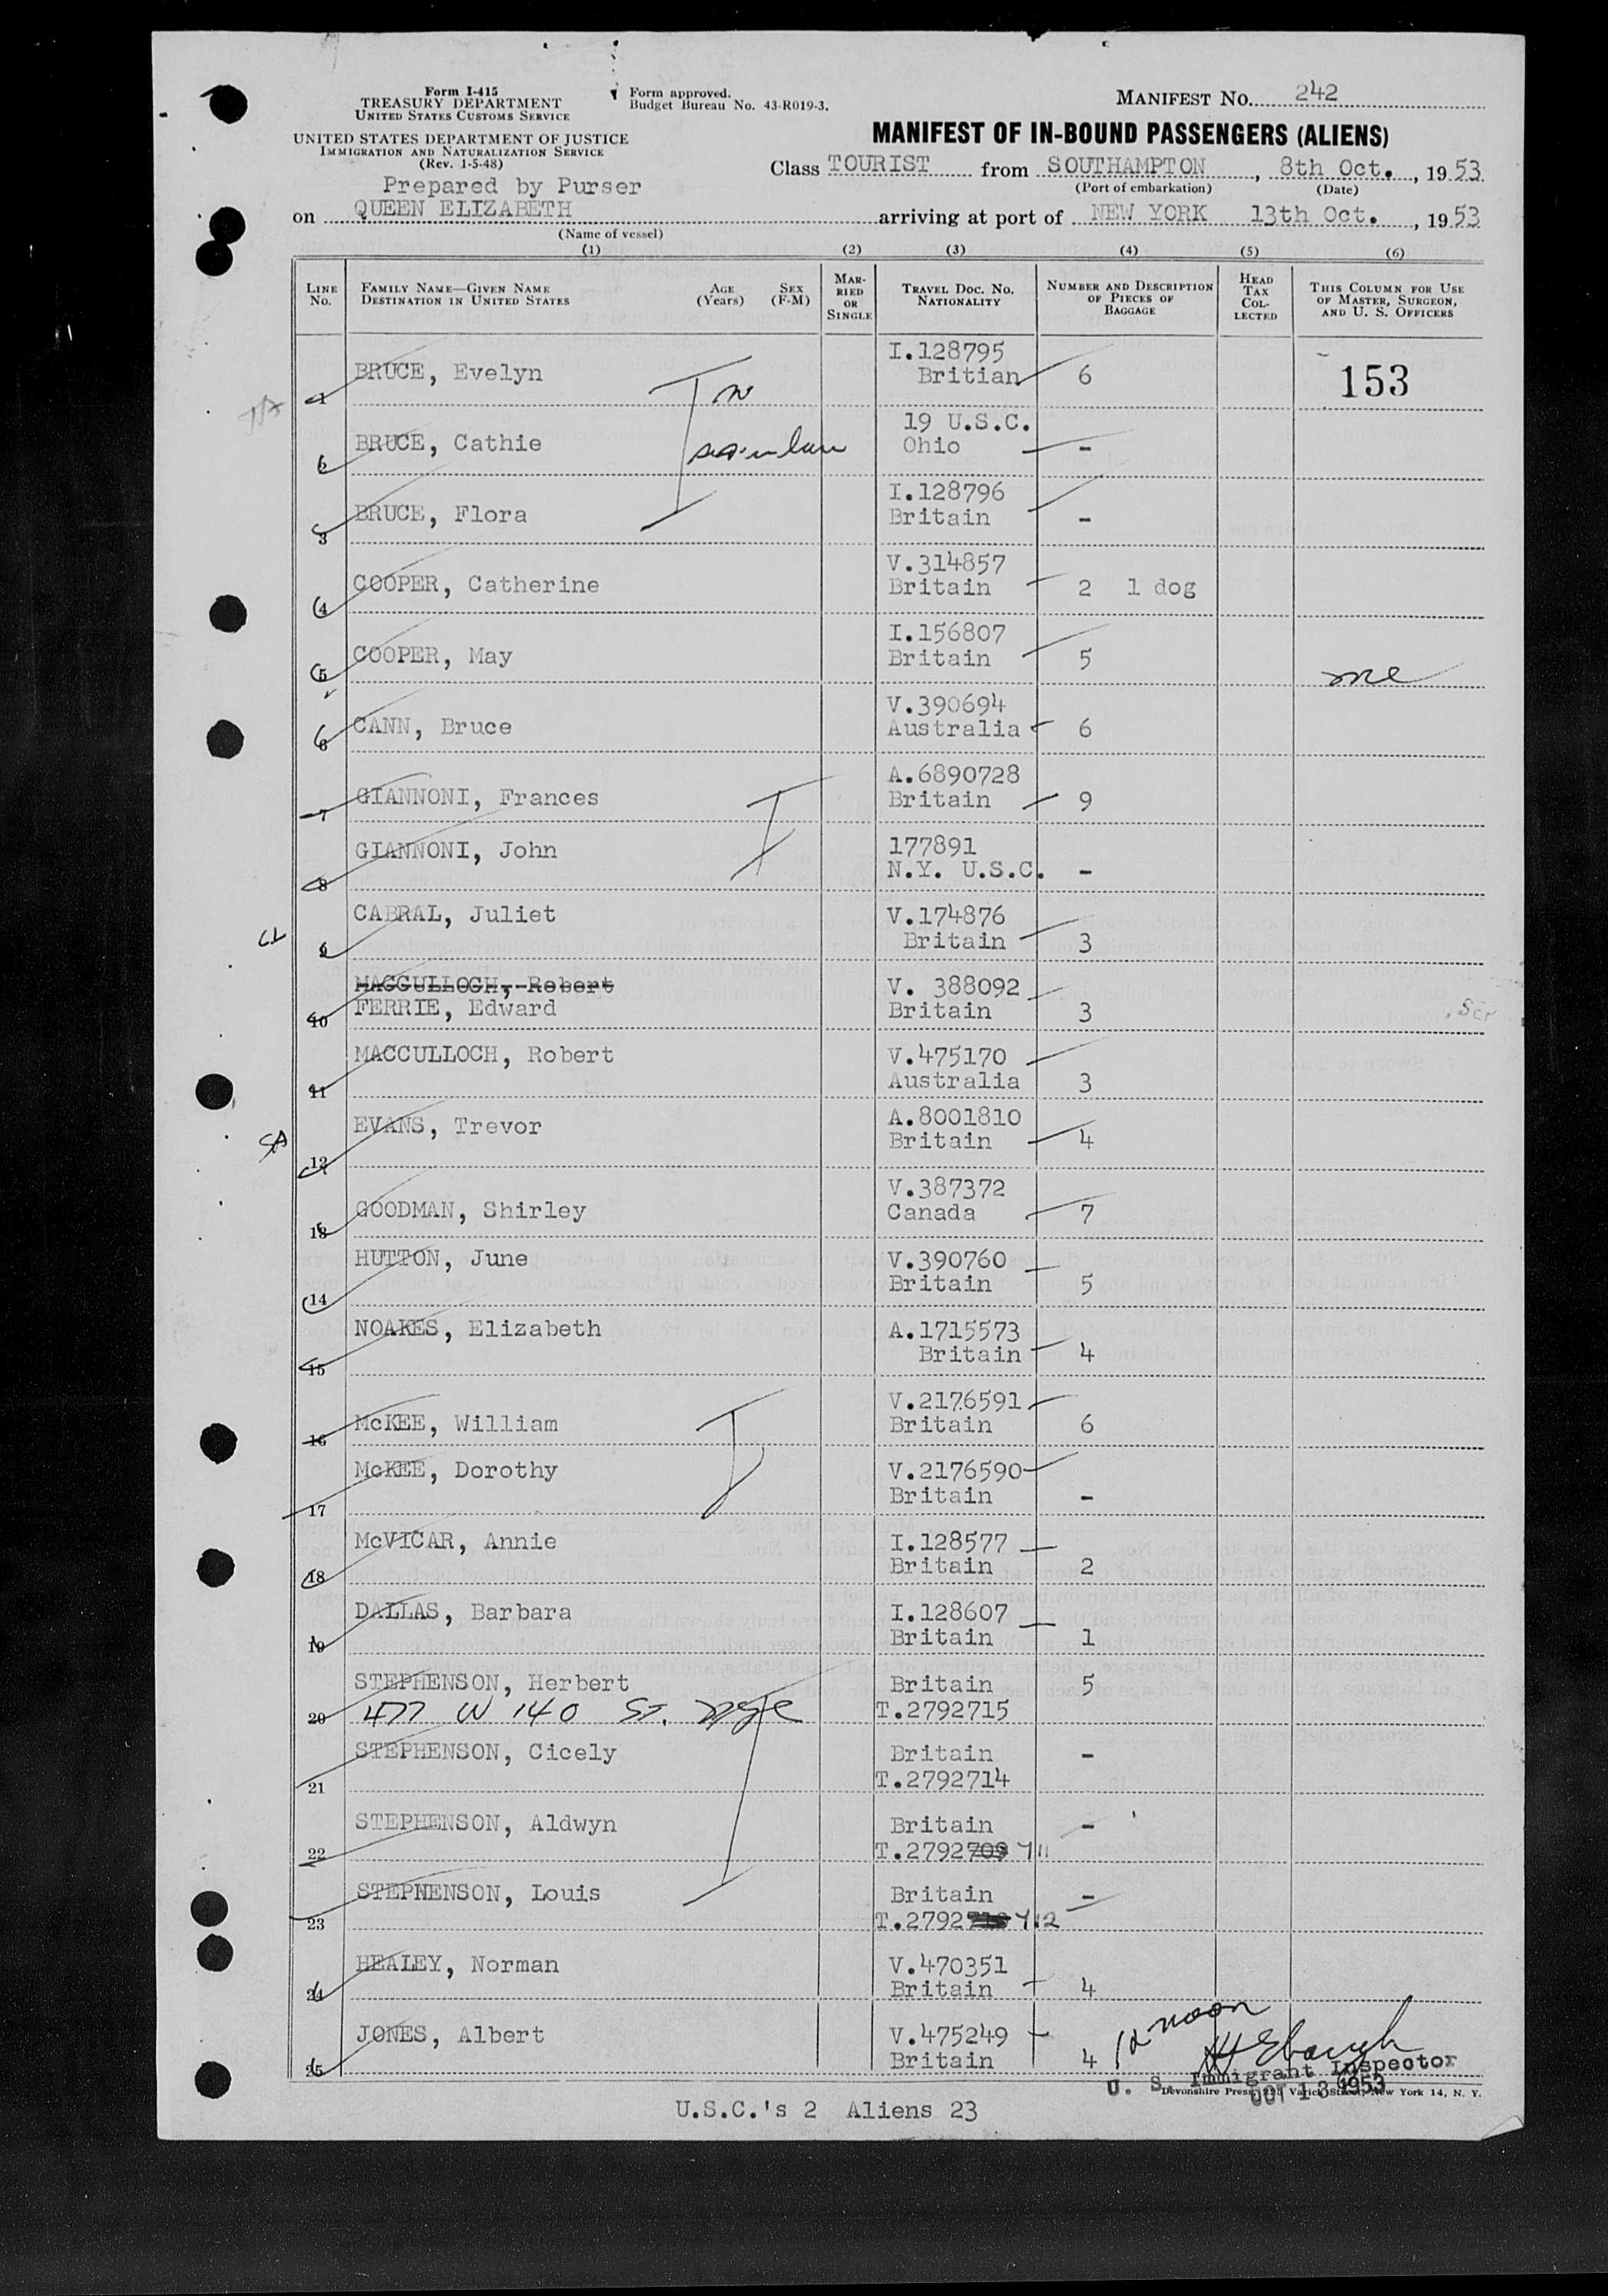 Form I-415
TREASURY DEPARTMENT
UNITED STATES CUSTOMS SERVICE
UNITED STATES DEPARTMENT OF JUSTICE
IMMIGRATION AND NATURALIZATION SERVICE
(Rev. 1-5-48)
Form approved.
Budget Bureau No. 43-R019-3.
MANIFEST NO. 242
MANIFEST OF IN-BOUND PASSENGERS (ALIENS)
Class TOURIST from SOUTHAMPTON, 8th Oct., 1953
(Port of embarkation) (Date)
Prepared by Purser
on QUEEN ELIZABETH arriving at port of NEW YORK 13th Oct., 1953
(Name of vessel)
(1) (2) (3) (4) (5) (6)
LINE NO. FAMILY NAME—GIVEN NAME DESTINATION IN UNITED STATES AGE (Years) SEX (F-M) MARRIED OR SINGLE TRAVEL DOC. NO. NATIONALITY NUMBER AND DESCRIPTION OF PIECES OF BAGGAGE HEAD TAX COLLECTED THIS COLUMN FOR USE OF MASTER, SURGEON, AND U. S. OFFICERS
1 BRUCE, Evelyn I.128795 Britian 6 153
BRUCE, Cathie 19 U.S.C. Ohio -
3 BRUCE, Flora I.128796 Britain -
4 COOPER, Catherine V.314857 Britain 2 1 dog
5 COOPER, May I.156807 Britain 5
6 CANN, Bruce V.390694 Australia 6
7 GIANNONI, Frances A.6890728 Britain 9
8 GIANNONI, John 177891 N.Y. U.S.C. -
CL
9 CABRAL, Juliet V.174876 Britain 3
MACCULLOCH, Robert
10 FERRIE, Edward V. 388092 Britain 3
11 MACCULLOCH, Robert V.475170 Australia 3
SA
12 EVANS, Trevor A.8001810 Britain 4
13 GOODMAN, Shirley V.387372 Canada 7
14 HUTTON, June V.390760 Britain 5
15 NOAKES, Elizabeth A.1715573 Britain 4
16 McKEE, William V.2176591 Britain 6
17 McKEE, Dorothy V.2176590 Britain -
18 McVICAR, Annie I.128577 Britain 2
19 DALLAS, Barbara I.128607 Britain 1
20 STEPHENSON, Herbert Britain 5
477 W 140 St. T.2792715
21 STEPHENSON, Cicely Britain -
T.2792714
22 STEPHENSON, Aldwyn Britain -
T.2792709 711
23 STEPHENSON, Louis Britain -
T.2792 712
24 HEALEY, Norman V.470351 Britain 4
25 JONES, Albert V.475249 Britain 4
12 noon
U. S. Immigrant Inspector
OCT 13 1953
Devonshire Press, 225 Varick Street, New York 14, N. Y.
U.S.C.'s 2 Aliens 23